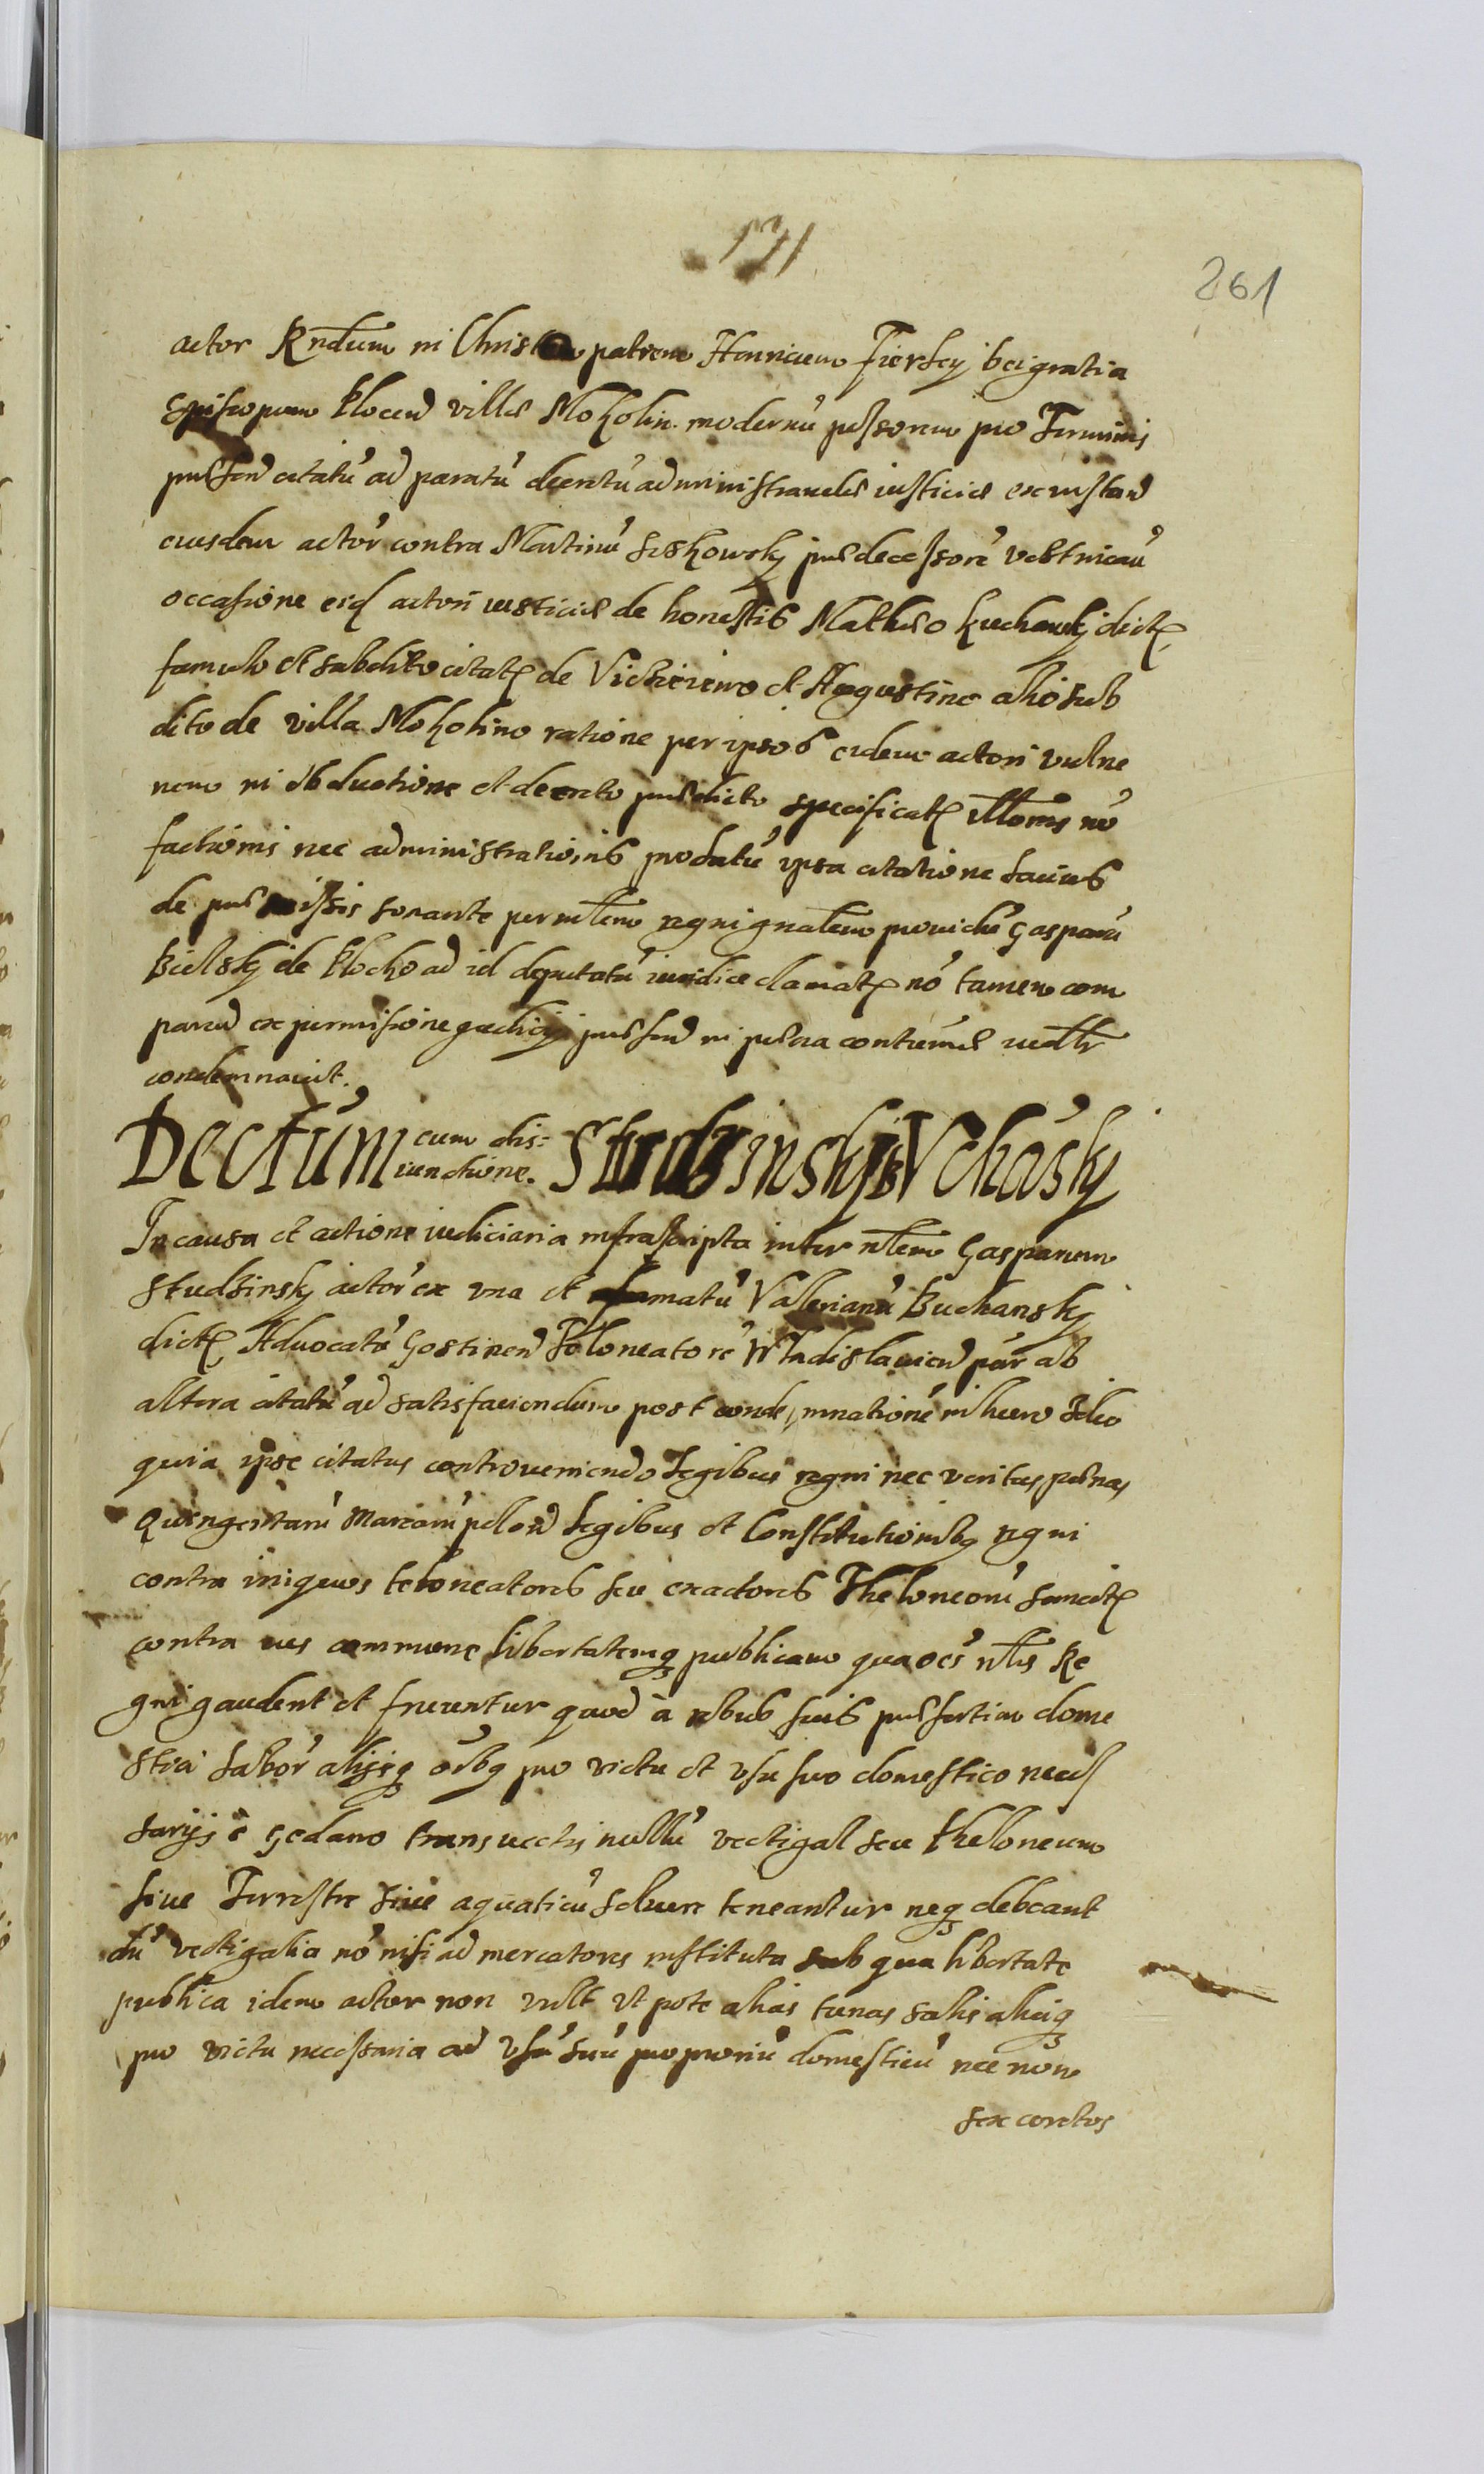 171
261
actor Rndum in Christo patrem Henricum Firley dei gratia
Episcopum Plocen villæ Mokolin. modernū pssorem pro Terminis
præsen citatū ad paratū decretū administrandæ iusticiæ ex instan
eiusdem actor contra Martinū prædecessorē
occasione eid actori iusticiæ de honestis Matheo Kuchawsky dict
famulo et subdito citat de et Augustino alio sub
dito de villa Mokolino ratione per ipsos eidem actori vulne
rum in obductione et decreto prædicto specificat illoris nō
factionis nec administrationis prodatū ipsa citatione lacius
de præmissis sonante per mlem regni gnalem prouidū Gasparū
Bielsky de Plocko ad id deputatū iuridice clamat nō tamen com
paren ex permissione iudicij præsen in pœna contumaciæ
condemnauit.
Decretūm cum dis=
iunctione. Studzinsky Vchāsky
In causa et actione iudiciaria infrascripta inter nlem Gasparem
Studzinsky actor ex vna et famatū Valerianū Buchansky
dict Advocatū Gostinen Toloneatorē Wladislauien par ab
altera citatū ad satisfaciendum post condemnationē in lucro Ideo
quia ipse citatus controveniendo Legibus regni nec veritus pœnas
Quingentarū Marcarū polon Legibus et Constitutionibq regni
contra iniquos teloneatores seu exactores Theloneorū sancit
contra ius commune libertatemq publicam qua oēs nles Re
gni gaudent et fruuntur quod à rebus suis præsertim dome
stici labor alijsq oībq pro victu et vsu suo domestico necess
sarijs è Gedano transuectis nullū vectigal seu theloneum
siue Terrestre siue aquaticū soluere teneantur neq debeant
cū vectigalia nō nisi ad mercatores instituta sub qua libertate
publica idem actor non vult vt pote alias tunas salis aliaq
pro victu necessaria ad vsū suū proprium domesticū nec non
sex coretos